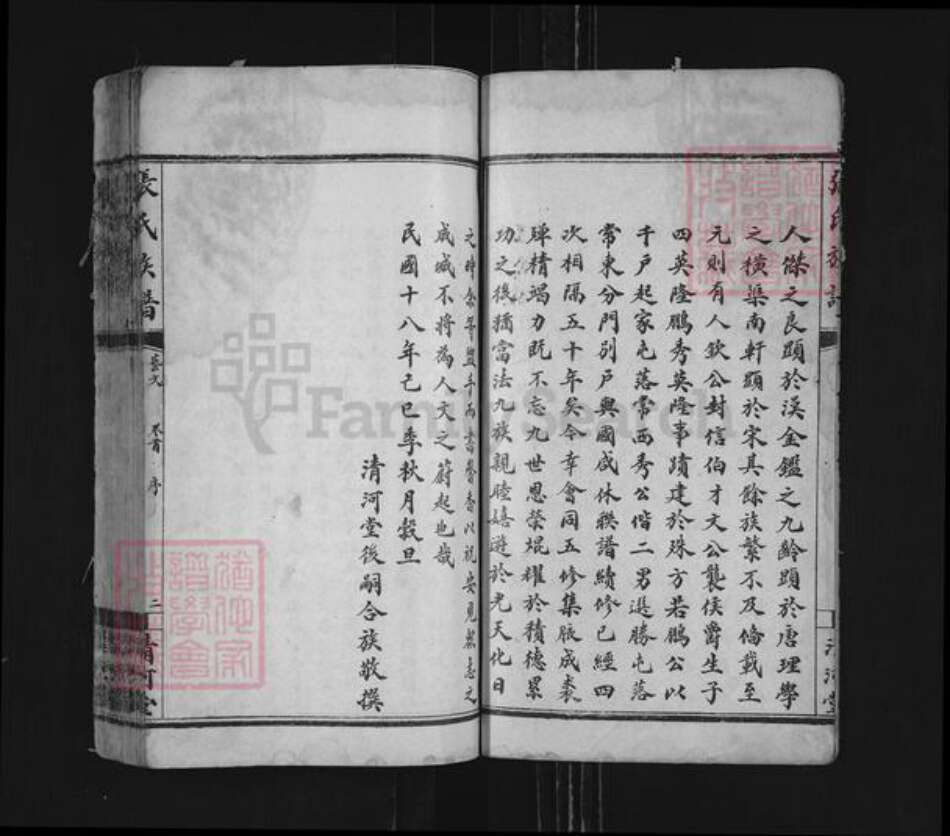 張氏族譜
清河堂
人傑之良顕於漢金鑑之九齡顕於唐理學
之橫渠南軒顕於宋其餘族繁不及俻載至
元則有人欽公封信伯才文公襲侯爵生子
四英隆鵬秀英隆事蹟建於殊方若鵬公以
千戶起家屯落常西秀公偕二男選勝屯落
常東分門別戶與國咸休聨譜續修已經四
次相隔五十年矣今幸會同五修集腋成裘
殫精竭力既不忘九世恩榮焜耀於積德累
功之後猶當法九族親睦嬉遊於光天化日
之時
以視安見無志之
成城不將為人文之蔚起也哉
民國十八年己巳季秋月穀旦
清河堂後嗣合族敬撰
張氏族譜
卷首 序
二
清河堂
FamilySearch